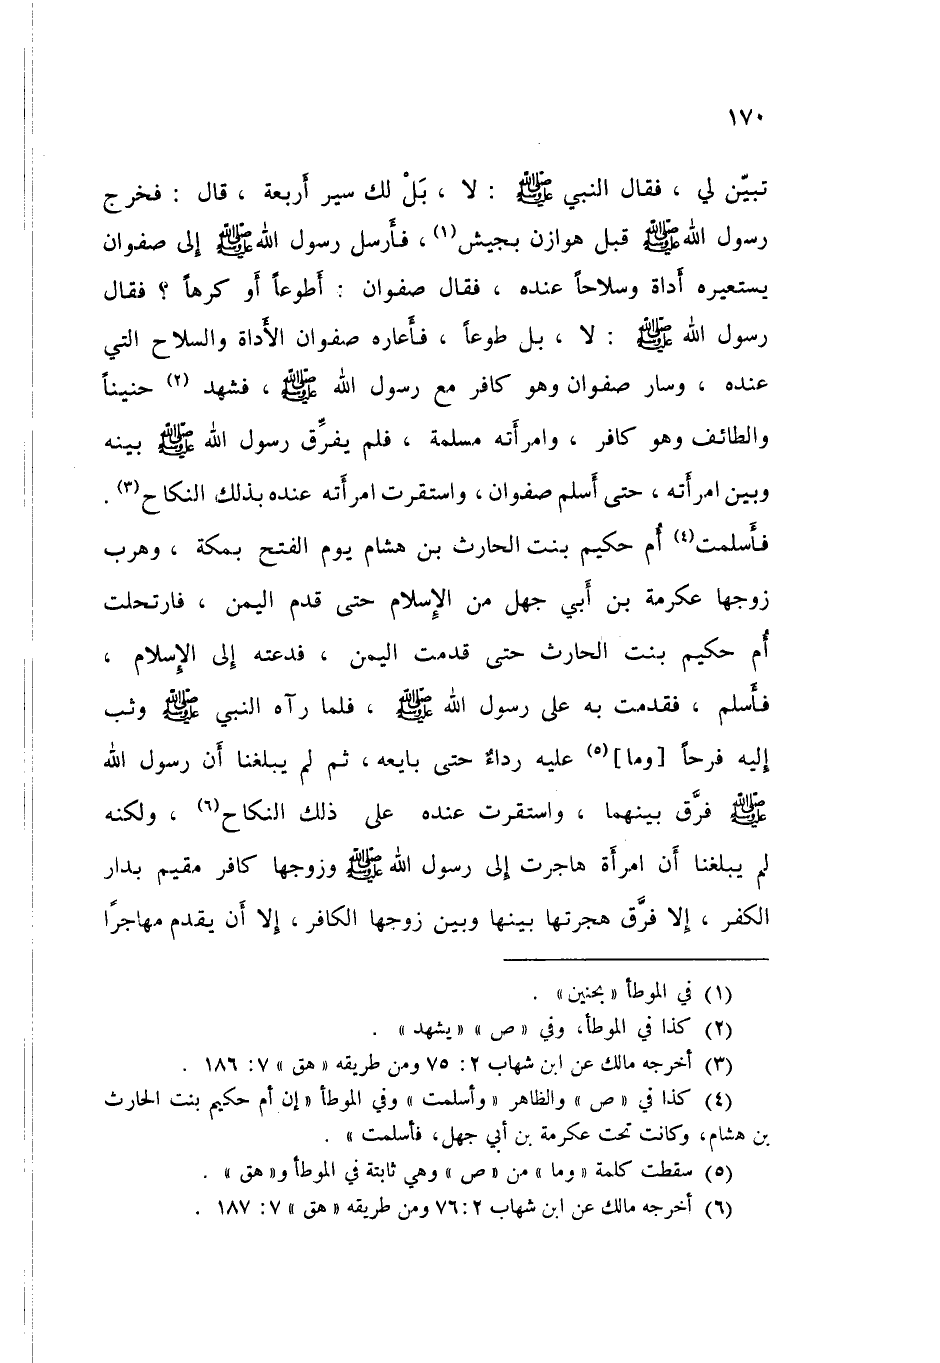 ١٧٠
تبيّن لي ، فقال النبي ﷺ : لا ، بَلْ لك سير أَربعة ، قال : فخرج
رسول الله ﷺ قبل هوازن بجيش(١) ، فأَرسل رسول الله ﷺ إلى صفوان
يستعيره أَداة وسلاحاً عنده ، فقال صفوان : أَطوعاً أَو كرهاً ؟ فقال
رسول الله ﷺ : لا ، بل طوعاً ، فأَعاره صفوان الأَداة والسلاح التي
عنده ، وسار صفوان وهو كافر مع رسول الله ﷺ ، فشهد (٢) حنيناً
والطائف وهو كافر ، وامرأَته مسلمة ، فلم يفرِّق رسول الله ﷺ بينه
وبين امرأَته ، حتى أَسلم صفوان ، واستقرت امرأَته عنده بذلك النكاح(٣) .
فأَسلمت(٤) أُم حكيم بنت الحارث بن هشام يوم الفتح بمكة ، وهرب
زوجها عكرمة بن أَبي جهل من الإِسلام حتى قدم اليمن ، فارتحلت
أُم حكيم بنت الحارث حتى قدمت اليمن ، فدعته إِلى الإِسلام ،
فأَسلم ، فقدمت به على رسول الله ﷺ ، فلما رآه النبي ﷺ وثب
إِليه فرحاً [وما](٥) عليه رداءٌ حتى بايعه ، ثم لم يبلغنا أَن رسول الله
ﷺ فرَّق بينهما ، واستقرت عنده على ذلك النكاح(٦) ، ولكنه
لم يبلغنا أَن امرأَة هاجرت إِلى رسول الله ﷺ وزوجها كافر مقيم بدار
الكفر ، إِلا فرَّق هجرتها بينها وبين زوجها الكافر ، إِلا أَن يقدم مهاجرًا
(١) في الموطأ « بحنين » .
(٢) كذا في الموطأ، وفي « ص » « يشهد » .
(٣) أخرجه مالك عن ابن شهاب ٢ : ٧٥ ومن طريقه « هق » ٧ : ١٨٦ .
(٤) كذا في « ص » والظاهر « وأسلمت » وفي الموطأ « إن أم حكيم بنت الحارث
بن هشام، وكانت تحت عكرمة بن أبي جهل، فأسلمت » .
(٥) سقطت كلمة « وما » من « ص » وهي ثابتة في الموطأ و« هق » .
(٦) أخرجه مالك عن ابن شهاب ٢ : ٧٦ ومن طريقه « هق » ٧ : ١٨٧ .